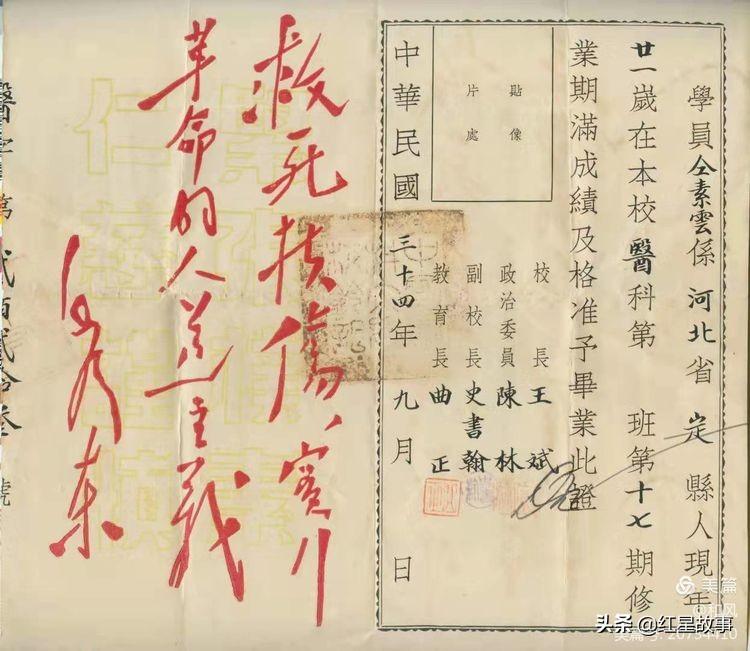 學員仝素雲係河北省定縣人現年
廿一歲在本校醫科第 班第十七期修
業期滿成績及格准予畢業此證
貼像
片處
校長王斌
政治委員陳林
副校長史書翰
教育長曲正
中華民國三十四年九月 日
救死扶傷、實行
革命的人道主義
毛澤東
醫字第貳百貳拾叁號
美篇
@和风
头条 @红星故事